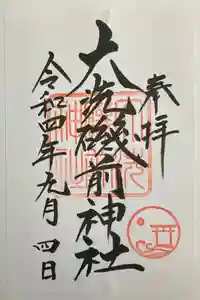 奉拝
大洗磯前神社
令和四年九月四日